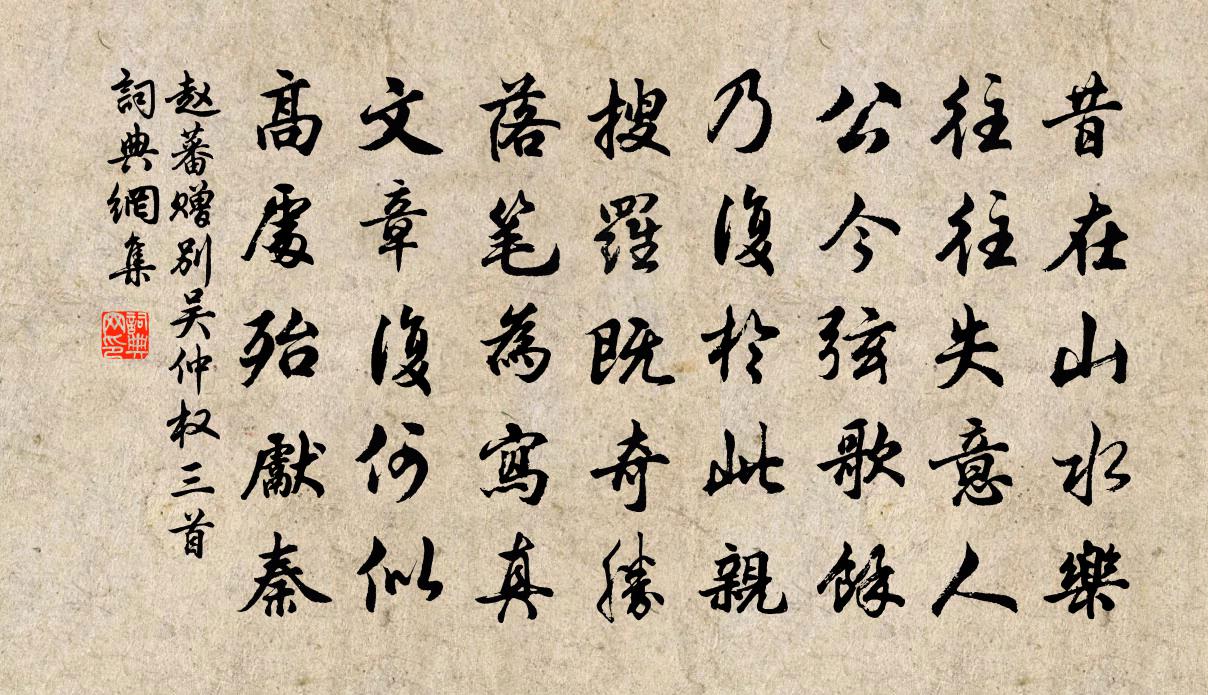 昔在山水樂
往往失意人
公今弦歌餘
乃復於此親
搜羅既奇勝
落笔為寫真
文章復何似
高處殆獻秦
赵蕃赠别吴仲权三首
詞典網集
詞典
网印